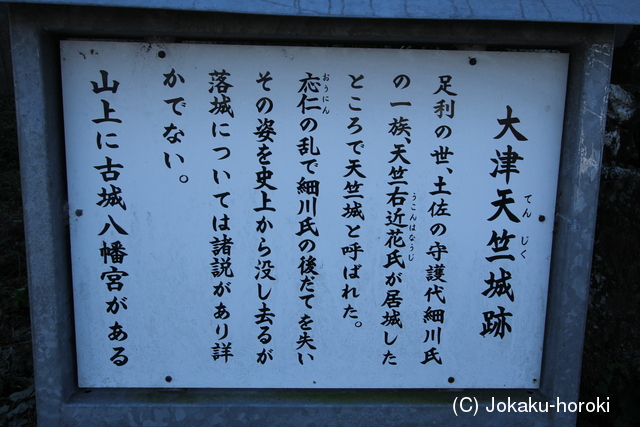 大津天竺城跡
てんじく
足利の世、土佐の守護代細川氏
の一族、天竺右近花氏が居城した
うこんはなうじ
ところで天竺城と呼ばれた。
応仁の乱で細川氏の後だてを失い
おうにん
その姿を史上から没し去るが
落城については諸説があり詳
かでない。
山上に古城八幡宮がある
(C) Jokaku-horoki